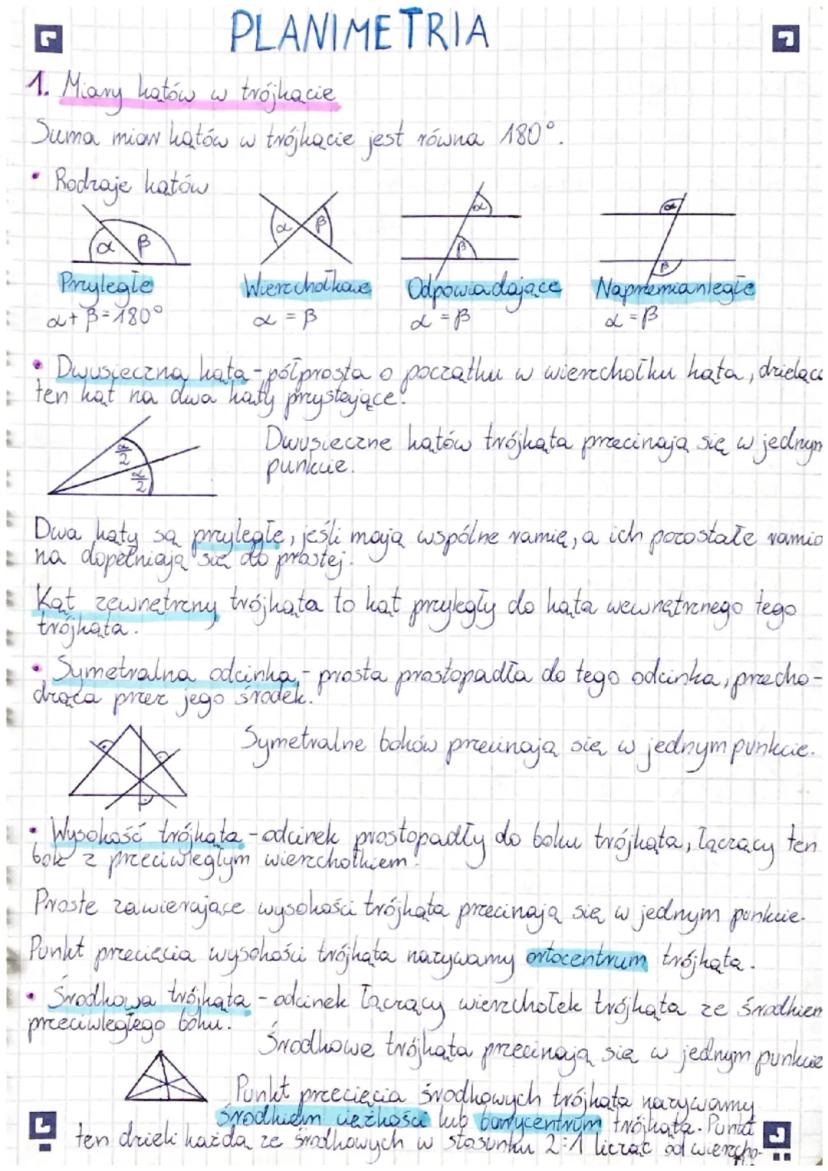 PLANIMETRIA
1. Miary kątów w trójkącie
Suma miar kątów w trójkącie jest równa 180°.
• Rodzaje kątów
α β α β α β α β
Przyległe Wierzchołkowe Odpowiadające Naprzemianległe
α + β = 180° α = β α = β α = β
• Dwusieczna kąta - półprosta o początku w wierzchołku kąta, dzieląca
ten kąt na dwa kąty przystające.
α/2 α/2
Dwusieczne kątów trójkąta przecinają się w jednym
punkcie.
Dwa kąty są przyległe, jeśli mają wspólne ramię, a ich pozostałe ramio
na dopełniają się do prostej.
Kąt zewnętrzny trójkąta to kąt przyległy do kąta wewnętrznego tego
trójkąta.
• Symetralna odcinka - prosta prostopadła do tego odcinka, przecho-
dząca przez jego środek.
Symetralne boków przecinają się w jednym punkcie.
• Wysokość trójkąta - odcinek prostopadły do boku trójkąta, łączący ten
bok z przeciwległym wierzchołkiem.
Proste zawierające wysokości trójkąta przecinają się w jednym punkcie.
Punkt przecięcia wysokości trójkąta nazywamy ortocentrum trójkąta.
• Środkowa trójkąta - odcinek łączący wierzchołek trójkąta ze środkiem
przeciwległego boku.
Środkowe trójkąta przecinają się w jednym punkcie
Punkt przecięcia środkowych trójkąta nazywamy
środkiem ciężkości lub barycentrum trójkąta. Punkt
ten dzieli każdą ze środkowych w stosunku 2:1 licząc od wierzcho-